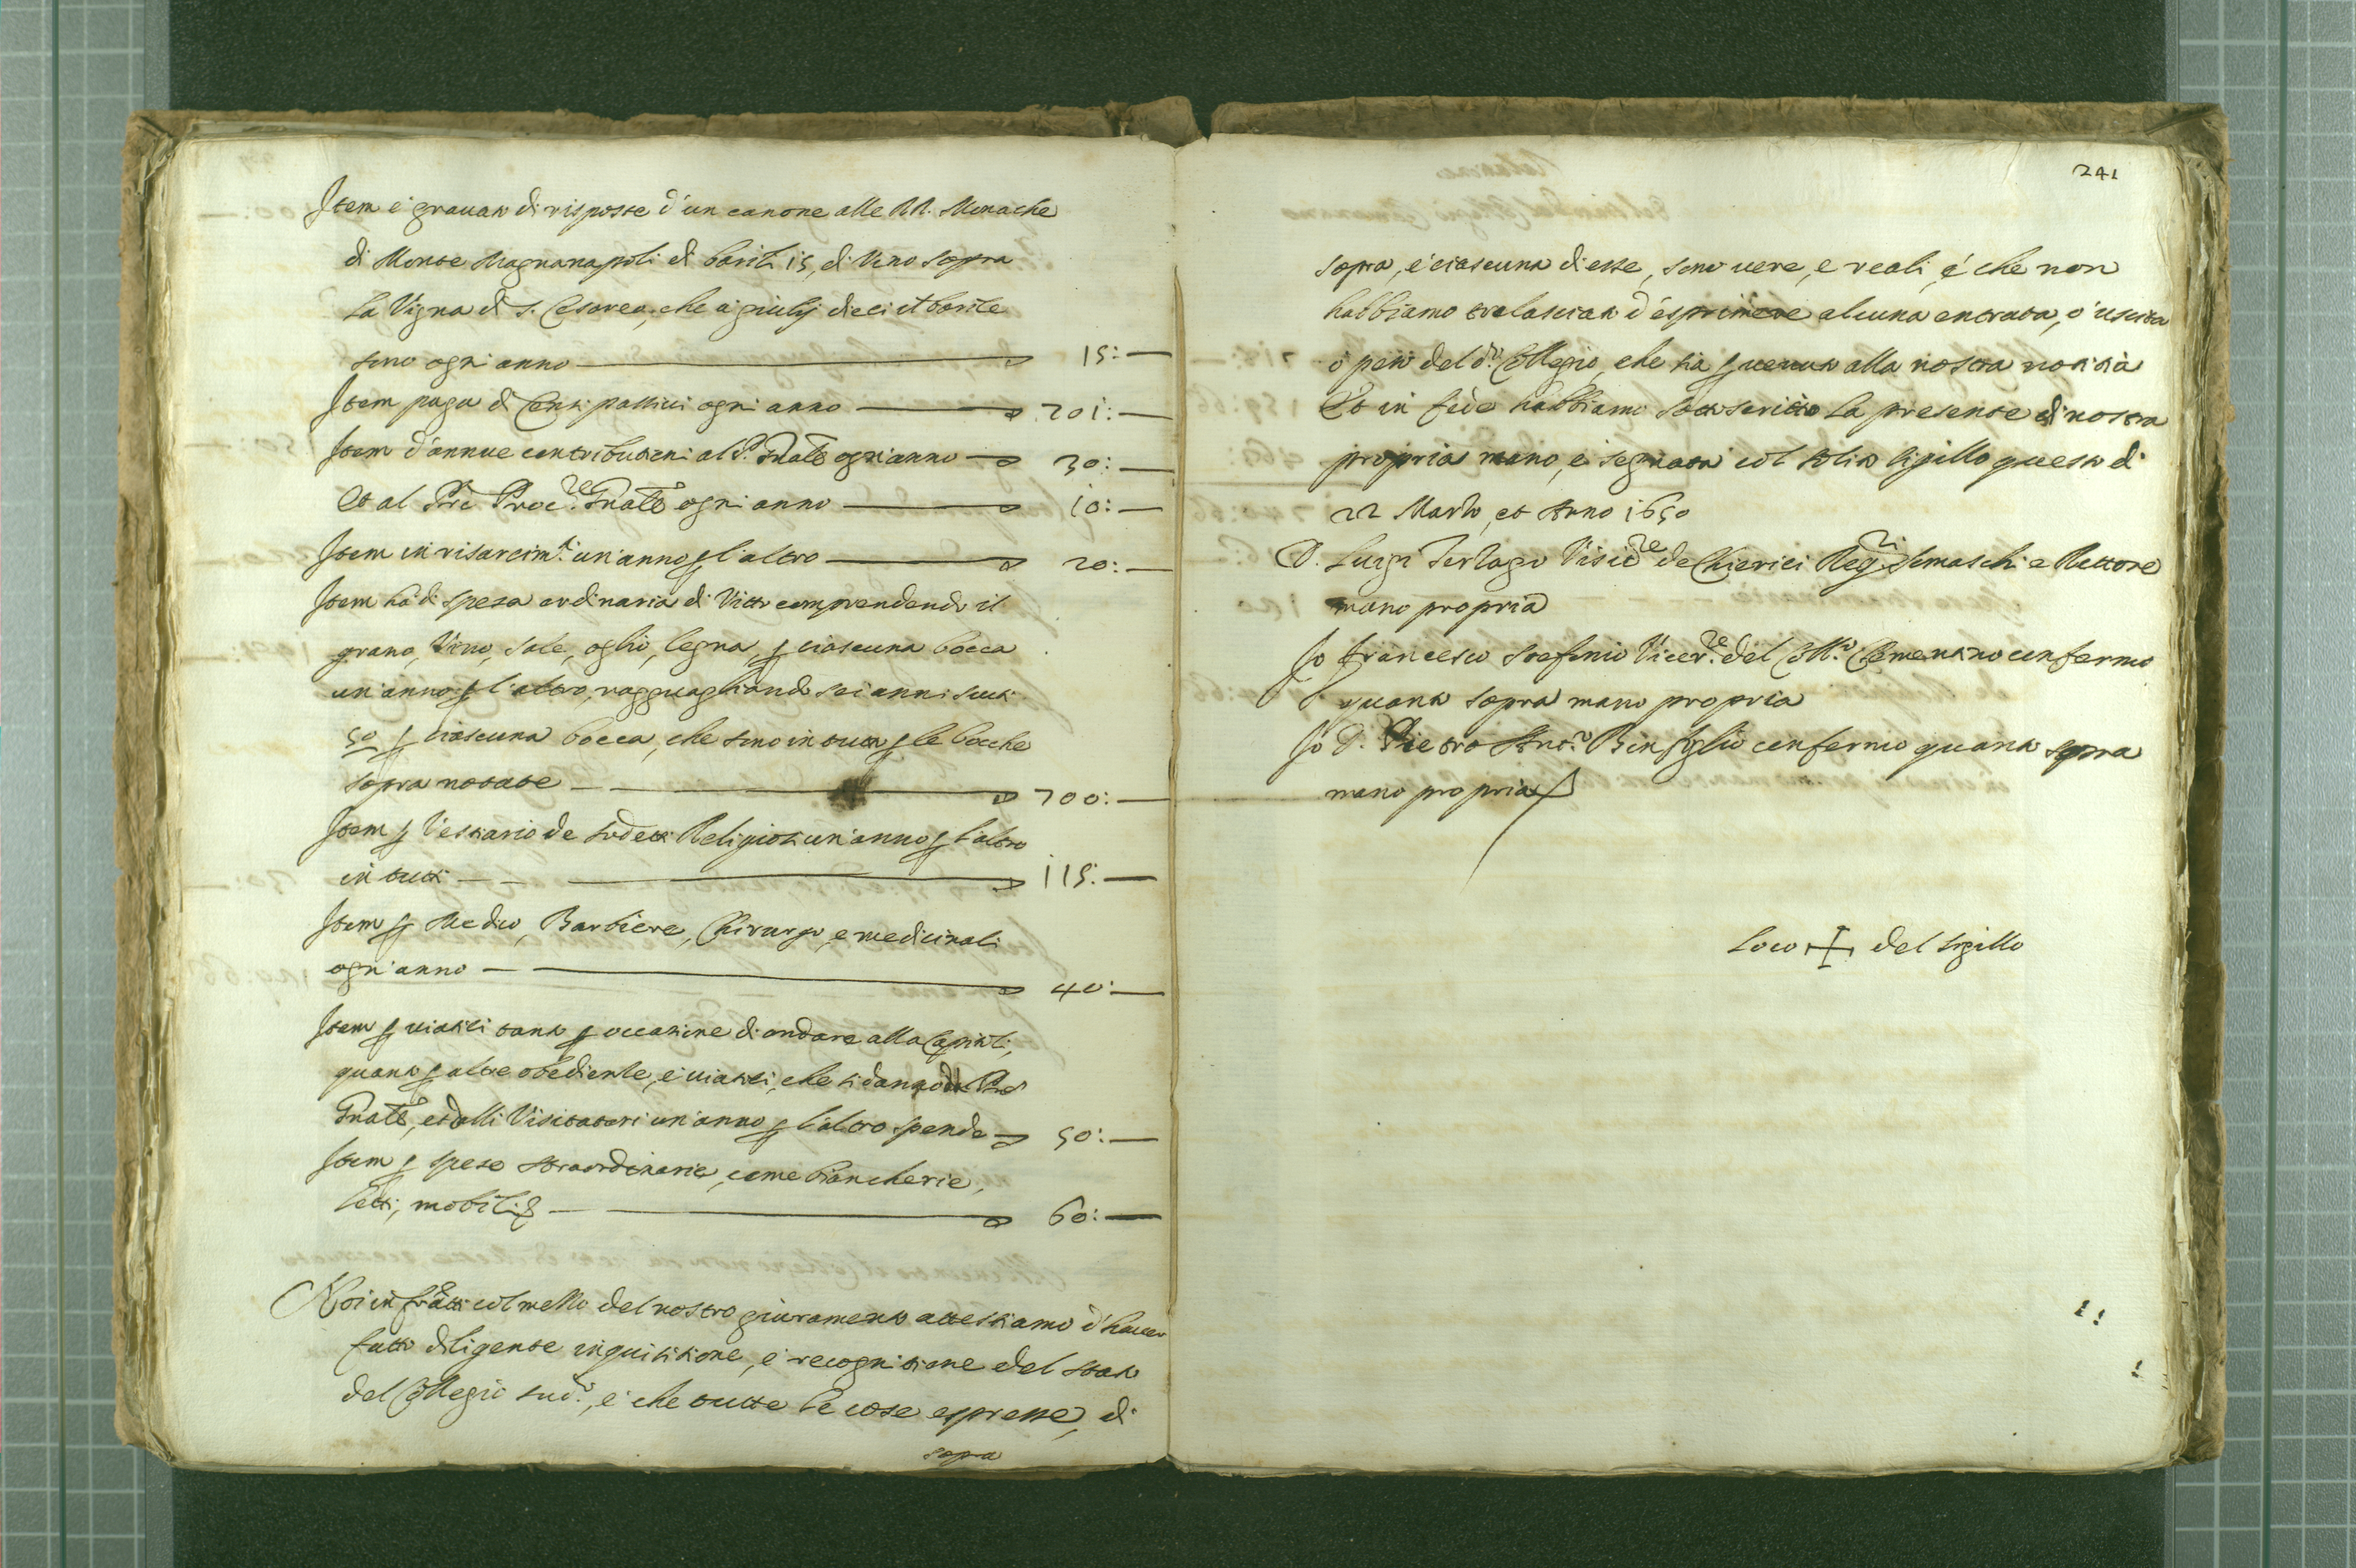 Item è gravato di risposte d'un canone alle RR. Monache
di Monte Magnanapoli di barili 15, di Vino sopra
la Vigna di S. Cesareo, che à giulij dieci il barile
sono ogni anno 15:—
Item paga di Censi passivi ogni anno 201:—
Item d'annue contributioni al P. Gnãle ogni anno 30:—
Et al Prẽ Proc.re Gnãle ogni anno 10:—
Item in risarcim.ti un'anno p l'altro 20:—
Item hà di spesa ordinaria di Vitto comprendendo il
grano, Vino, Sale, oglio, legna, p ciascuna bocca
un'anno p l'altro, ragguagliando sei anni scudi
50 p ciascuna bocca, che sono in tutto p le bocche
sopra notate 700:—
Item p Vestiario de sudetti Religiosi un'anno p l'altro
in tutti 115:—
Item p Medico, Barbiere, Chirurgo, e medicinali
ogni anno 40:—
Item p viatici tanto p occasione di andare alla Capitoli,
quanto p altre obedienze, e viatici, che si danno al Pre
Gnãle, et alli Visitatori un'anno p l'altro spende 50:—
Item p spese straordinarie, come biancherie,
letti, mobili &
60:—
Noi infrãtti col mezzo del nostro giuramento attestiamo d'haver
fatto diligente inquisitione, e recognitione del stato
del Collegio sud.o, e che tutte le cose espresse, di
sopra
241
sopra, e ciascuna di esse, sono vere, e reali, e che non
habbiamo tralasciato d'esprimere alcuna entrata, ò uscita
ò peso del d.o Collegio, che sia pvenuto alla nostra notitia
Et in fede habbiamo sottoscritto la presente di nostra
propria mano, e segnata col solito sigillo questo dì
22 Marzo et Anno 1650
D. Luigi Terzago Visit.re de Chierici Reg.ri Somaschi e Rettore
mano propria
Io Francesco Stefenio Vicer.re del Coll.o Clementino confermo
quanto sopra mano propria
Io D. Pietro Ant.o Binfiglio confermo quanto sopra
mano propria
Loco + del Sigillo